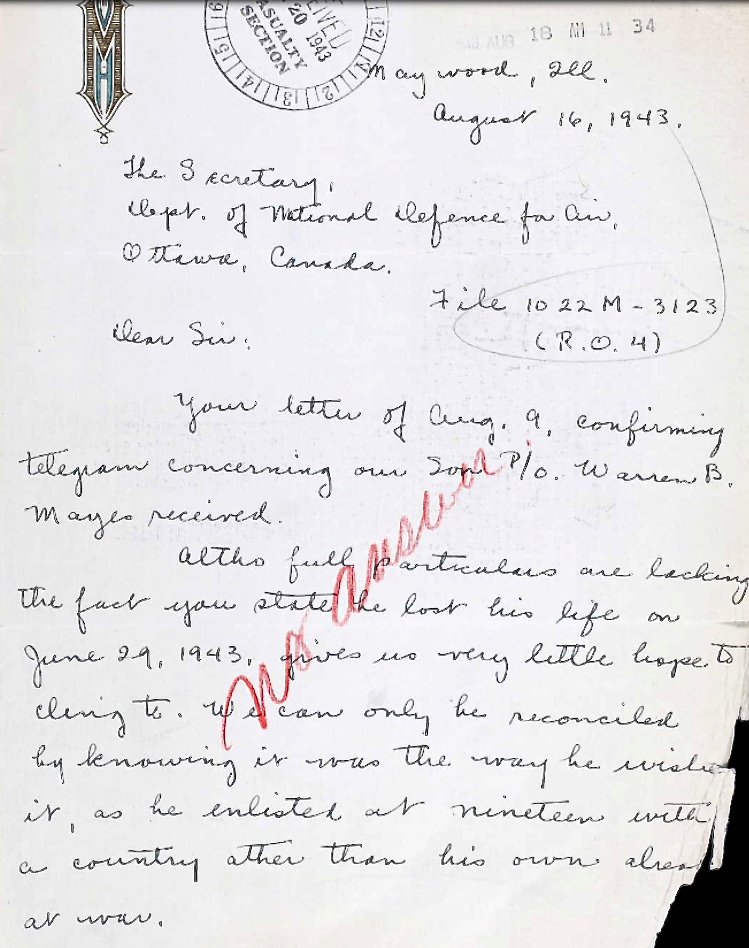 VMH
RECEIVED
20 1943
CASUALTY
SECTION
AUG 18 AM 11 34
Maywood, Ill.
August 16, 1943.
The Secretary,
Dept. of National Defence for Air,
Ottawa, Canada.
File 1022 M-3123
(R.O. 4)
Dear Sir:
Your letter of Aug. 9, confirming
telegram concerning our Son P/o. Warren B.
Mayes received.
Altho full particulars are lacking
the fact you state he lost his life on
June 29, 1943, gives us very little hope to
cling to. We can only be reconciled
by knowing it was the way he wishe
it, as he enlisted at nineteen with
a country other than his own alrea
at war.
No Answer